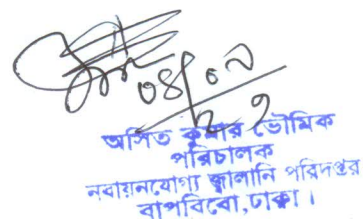 ০৪/০৭
২১
অসিত কুমার ভৌমিক
পরিচালক
নবায়নযোগ্য জ্বালানি পরিদপ্তর
বাপবিবো, ঢাকা।